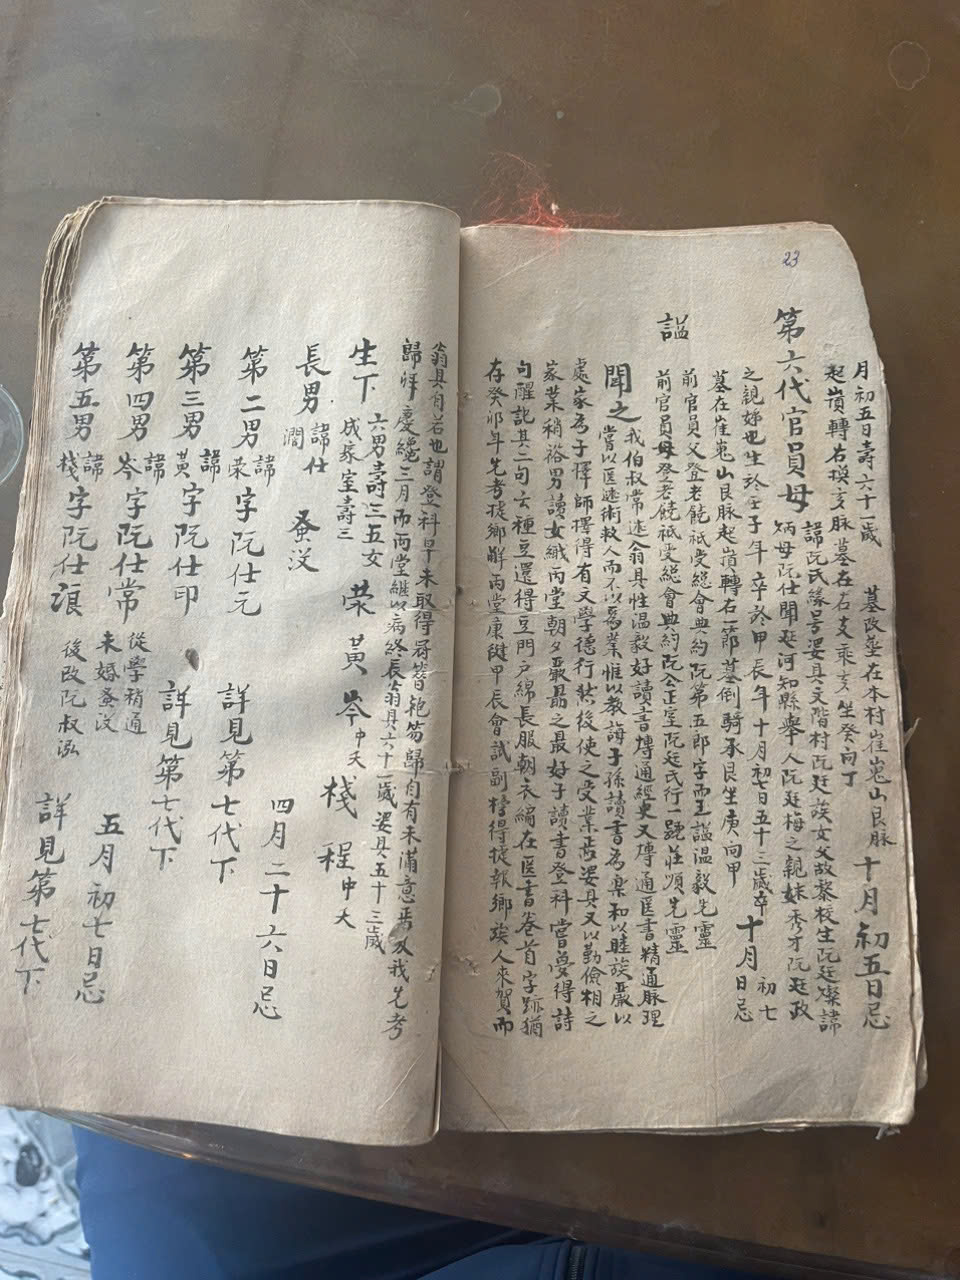 23
月初五日壽六十一歲 墓改塟在本村崔嵬山艮脉 十月初五日忌
起嶺轉右換亥脉墓在右支乘亥坐癸向丁
第六代官員母 諱阮氏緣号婆具文階村阮廷族女父故黎校生阮廷燦諱
炳母阮仕聞廷河知縣舉人阮廷梅之親妹秀才阮廷政
之親姊也生於壬子年卒於甲辰年十月初七日五十三歲卒 十月初七日忌
墓在崔嵬山艮脉起嶺轉右一節墓倒騎承艮坐庚向甲
謚 前官員父登老饒祗受總會典約阮第五郎字而王謚温毅先靈
前官員母登老饒祗受總會典約阮公正室阮廷氏行一號莊順先靈
聞之 我伯叔常述翁具性温毅好讀書博通經史又博通医書精通脉理
嘗以医述術救人而不以為業惟以教誨子孫讀書為樂和以睦族嚴以
處家為子擇師擇得有文學德行然後使之受業焉婆具又以勤儉相之
家業稍裕男讀女織丙堂朝夕嚴勗之最好子讀書登科嘗夢得詩
句醒記其二句云種豆還得豆門户綿長服朝衣編在医書卷首字跡猶
存癸卯年先考捷鄉解丙堂康健甲辰會試副榜得捷報鄉族人來賀而
翁具自若也謂登科早未取得尋簪袍笏歸自有未滿意焉及我先考
歸拜慶纔三月而丙堂繼以病終長翁具六十一歲婆具五十三歲
生下 六男壽三五女 荣 黃 岑中夭 棧 程中夭
成葬室壽三
長男 諱仕潤 蚤没
第二男 諱荣 字阮仕元 詳見第七代下 四月二十六日忌
第三男 諱黃 字阮仕印 詳見第七代下
第四男 諱岑 字阮仕常 從學稍通未婚蚤没 五月初七日忌
第五男 諱棧 字阮仕浪 後改阮叔泓 詳見第七代下